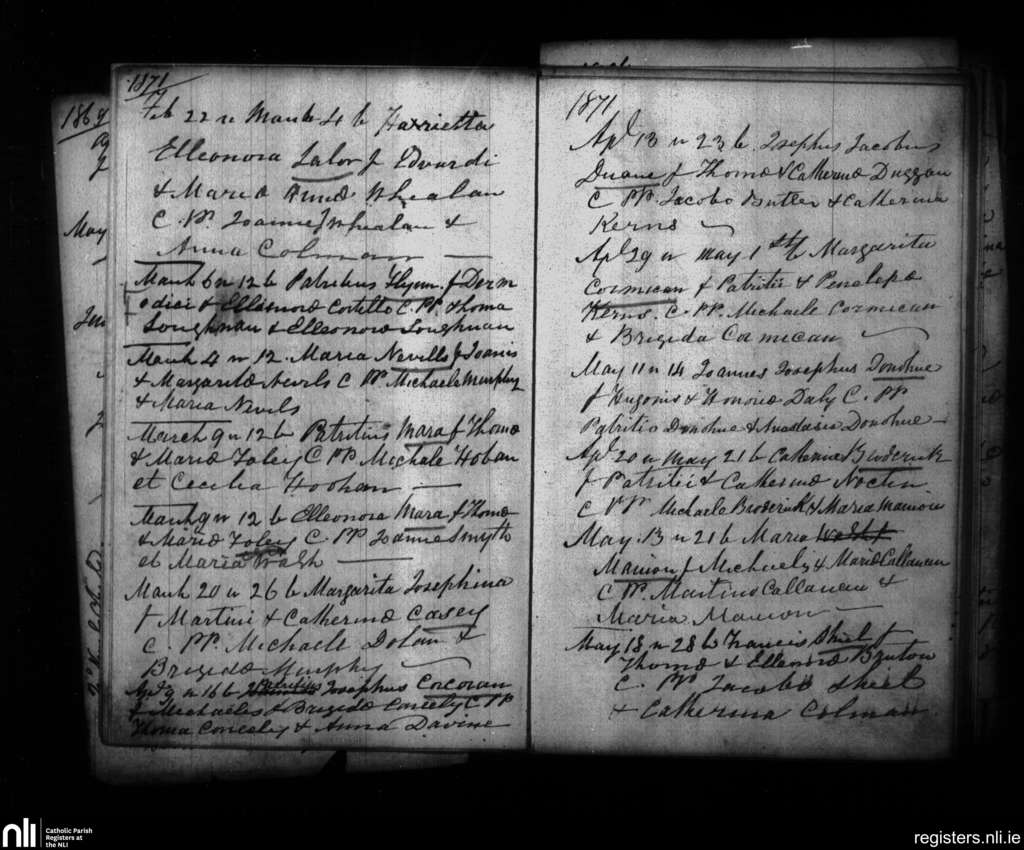 1869
May
1871
Feb 22 n March 4 b Harrietta
Elleonora Lalor f Edvardi
& Mariæ Annæ Whealan
C. PP. Joanne Whealan &
Anna Colman
March 6 n 12 b Patritius Flynn f Derm
odici & Ellenoræ Costello C. PP. Thoma
Loughnan & Elleonora Loughnan
March 4 n 12. Maria Nevills f Joanis
& Margaritæ Nevils C PP Michaele Murphy
& Maria Nevils
March 9 n 12 b Patritius Mara f Thomæ
& Mariæ Foley C PP Michale Hoban
et Cecilia Hoohan
March 9 n 12 b Elleonora Mara f Thomæ
& Mariæ Foley C. PP Joanne Smyth
et Maria Walsh
March 20 n 26 b Margarita Josephina
f Martini & Catherinæ Casey
C. PP. Michaele Dolan &
Brigida Murphy
Apl 9 n 16 b Patritius Josephus Corcoran
f Michaelis & Brigidæ Coneely C PP
Thoma Coneely & Anna Davine
1871
Apl 13 n 23 b. Josephus Jacobus
Duane f Thomæ & Catherinæ Duggan
C PP. Jacobo Butler & Catherina
Kerns
Apl 29 n May 1st b Margarita
Cormican f Patritii & Penelope
Kerns. C. PP. Michaele Cormican
& Brigida Cormican
May 11 n 14 Joannes Josephus Donohue
f Hugonis & Honoræ Daly C. PP
Patritio Donohue & Anastasia Donohue
Apl 20 n May 21 b Catherine Broderick
f Patritii & Catherinæ Noctin
C PP Michaele Broderick & Maria Manion
May 13 n 21 b Maria
Manion f Michaely & Mariæ Callanan
C PP. Martino Callanan &
Maria Manion
May 18 n 28 b Francis Shiel f
Thomæ & Ellenoræ Bruton
C. PP. Jacobo Sheel
& Catherina Colman
nli
Catholic Parish
Registers at
the NLI
registers.nli.ie